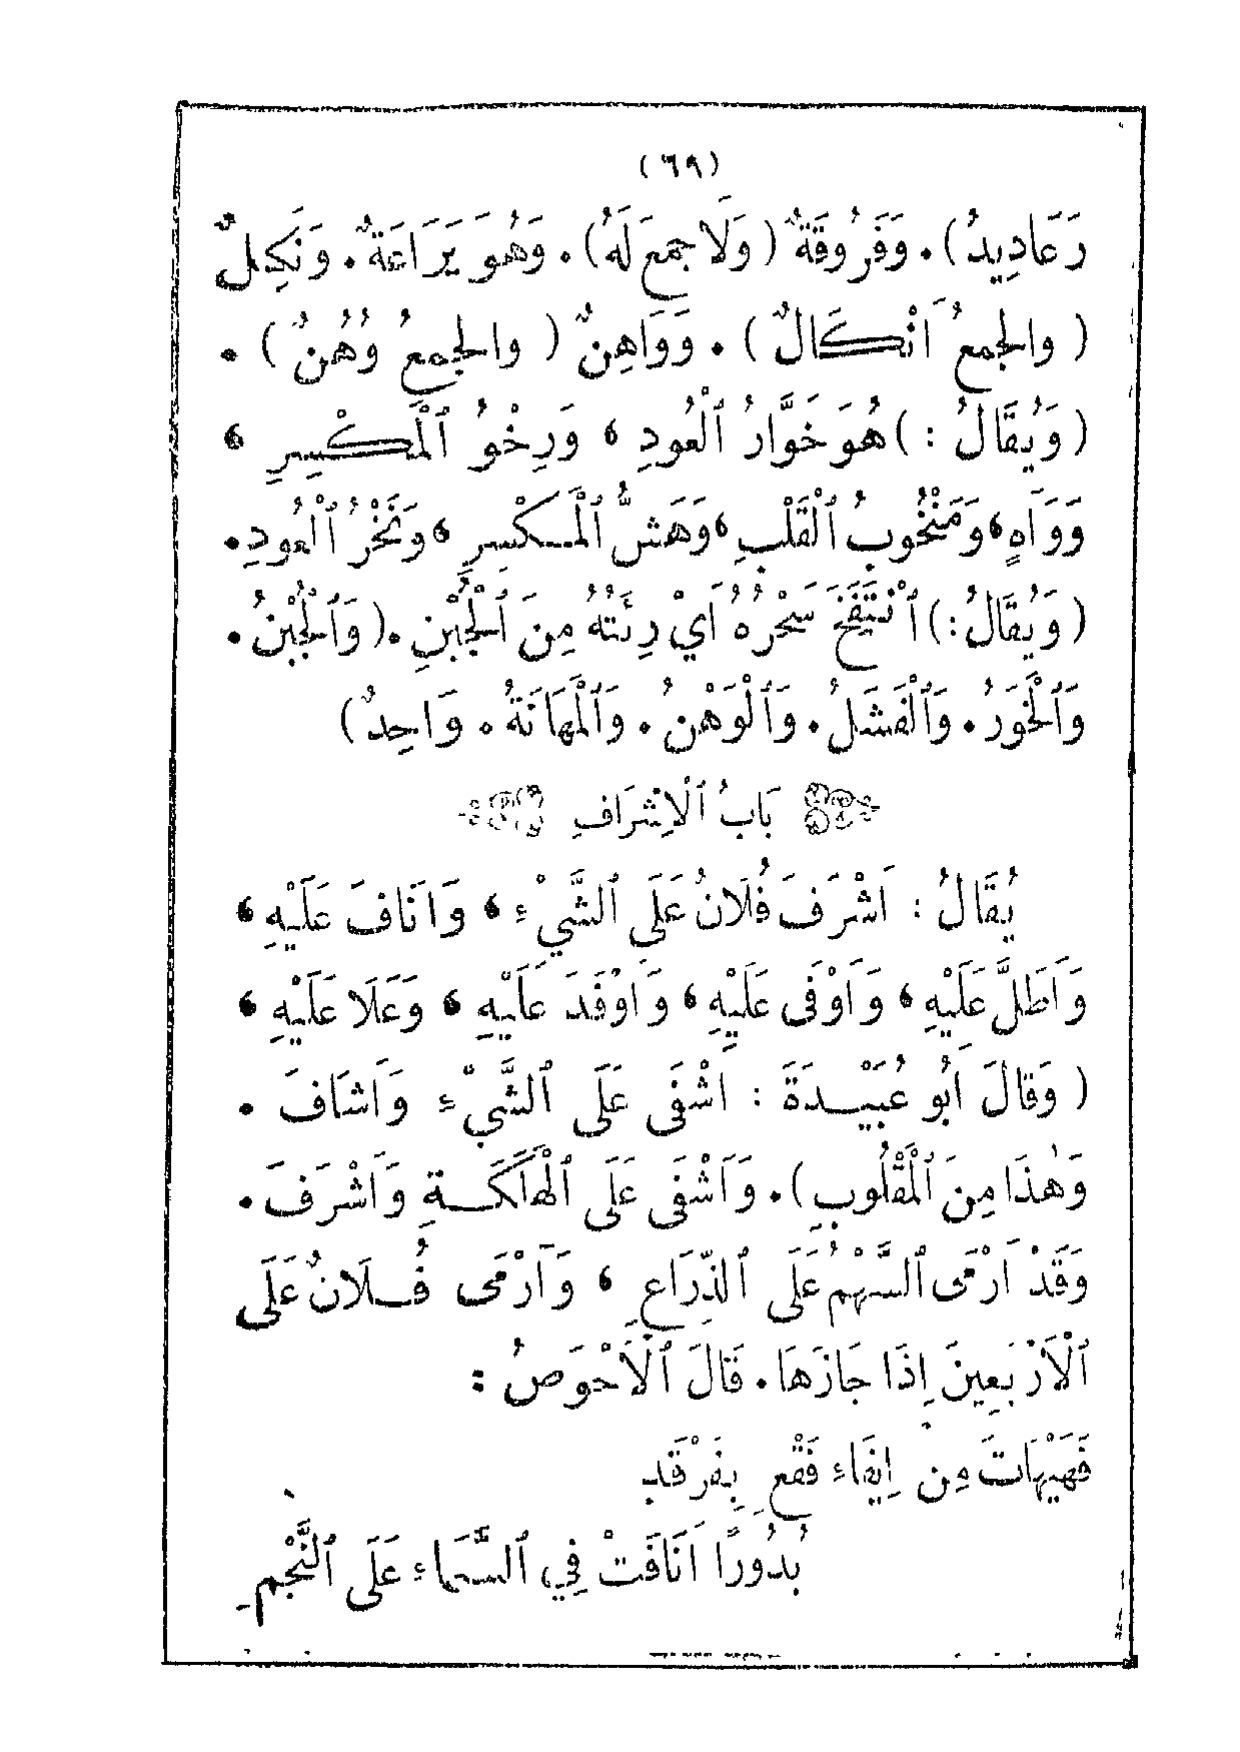 (٦٩)
رَعَادِيدُ). وَفَرُوقَةٌ (وَلَا جمعَ لَهُ). وَهُوَ يَرَاعَةٌ. وَنَكِلٌ
(والجمعُ اَنْكَالٌ). وَوَاهِنٌ (والجمعُ وُهُنٌ).
(وَيُقَالُ:) هُوَ خَوَّارُ ٱلْعُودِ، وَرِخْوُ ٱلْمَكْسِرِ،
وَوَاهٍ، وَمَنْخُوبُ ٱلْقَلْبِ، وَهَشُّ ٱلْمَكْسِرِ، وَنَخْرُ ٱلْعُودِ.
(وَيُقَالُ:) ٱنْتَفَخَ سَحْرُهُ اَيْ رِئَتُهُ مِنَ ٱلْجُبْنِ. (وَٱلْجُبْنُ.
وَٱلْخَوَرُ. وَٱلْفَشَلُ. وَٱلْوَهْنُ. وَٱلْمَهَانَةُ. وَاحِدٌ)
بَابُ ٱلْاِشْرَافِ
يُقَالُ: اَشْرَفَ فُلَانٌ عَلَى ٱلشَّيْءِ، وَاَنَافَ عَلَيْهِ،
وَاَطَلَّ عَلَيْهِ، وَاَوْفَى عَلَيْهِ، وَاَوْفَدَ عَلَيْهِ، وَعَلَا عَلَيْهِ،
(وَقَالَ اَبُو عُبَيْدَةَ: اَشْفَى عَلَى ٱلشَّيْءِ وَاَشَافَ.
وَهٰذَا مِنَ ٱلْمَقْلُوبِ). وَاَشْفَى عَلَى ٱلْهَلَكَةِ وَاَشْرَفَ.
وَقَدْ اَرْمَى ٱلسَّهْمُ عَلَى ٱلذِّرَاعِ، وَاَرْمَى فُلَانٌ عَلَى
ٱلْاَرْبَعِينَ اِذَا جَازَهَا. قَالَ ٱلْاَحْوَصُ:
فَهَيْهَاتَ مِنْ اِيفَاءِ فَقْعٍ بِفَرْقَدٍ
بُدُورًا اَنَافَتْ فِي ٱلسَّمَاءِ عَلَى ٱلنَّجْمِ